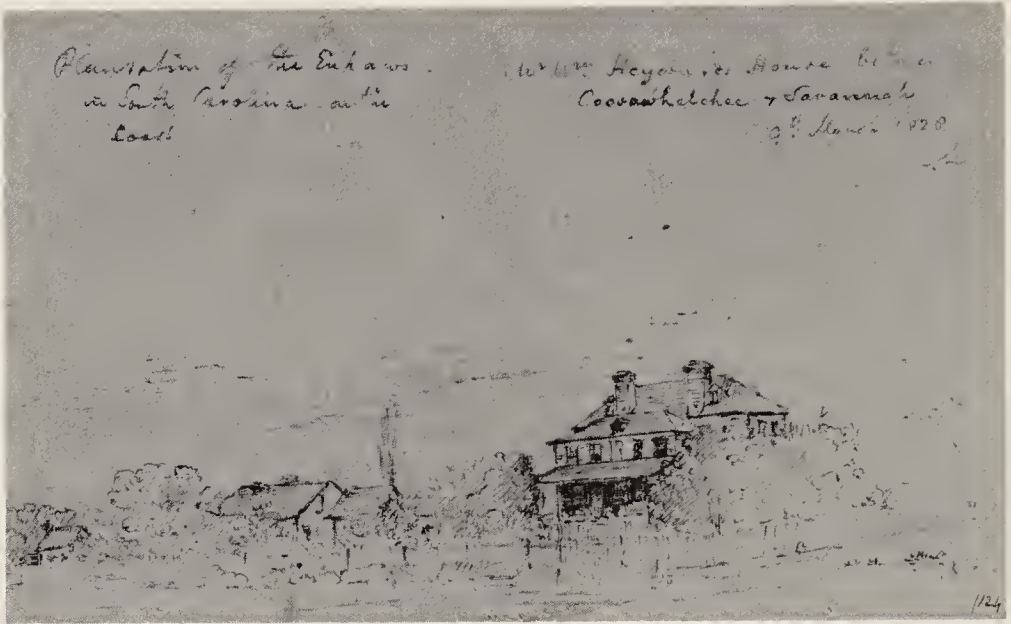 Plantation of the Euhaws
in South Carolina on the
Coast
Mr Wm Heyward's House
Coosawhatchee & Savannah
9th March 1828
1124